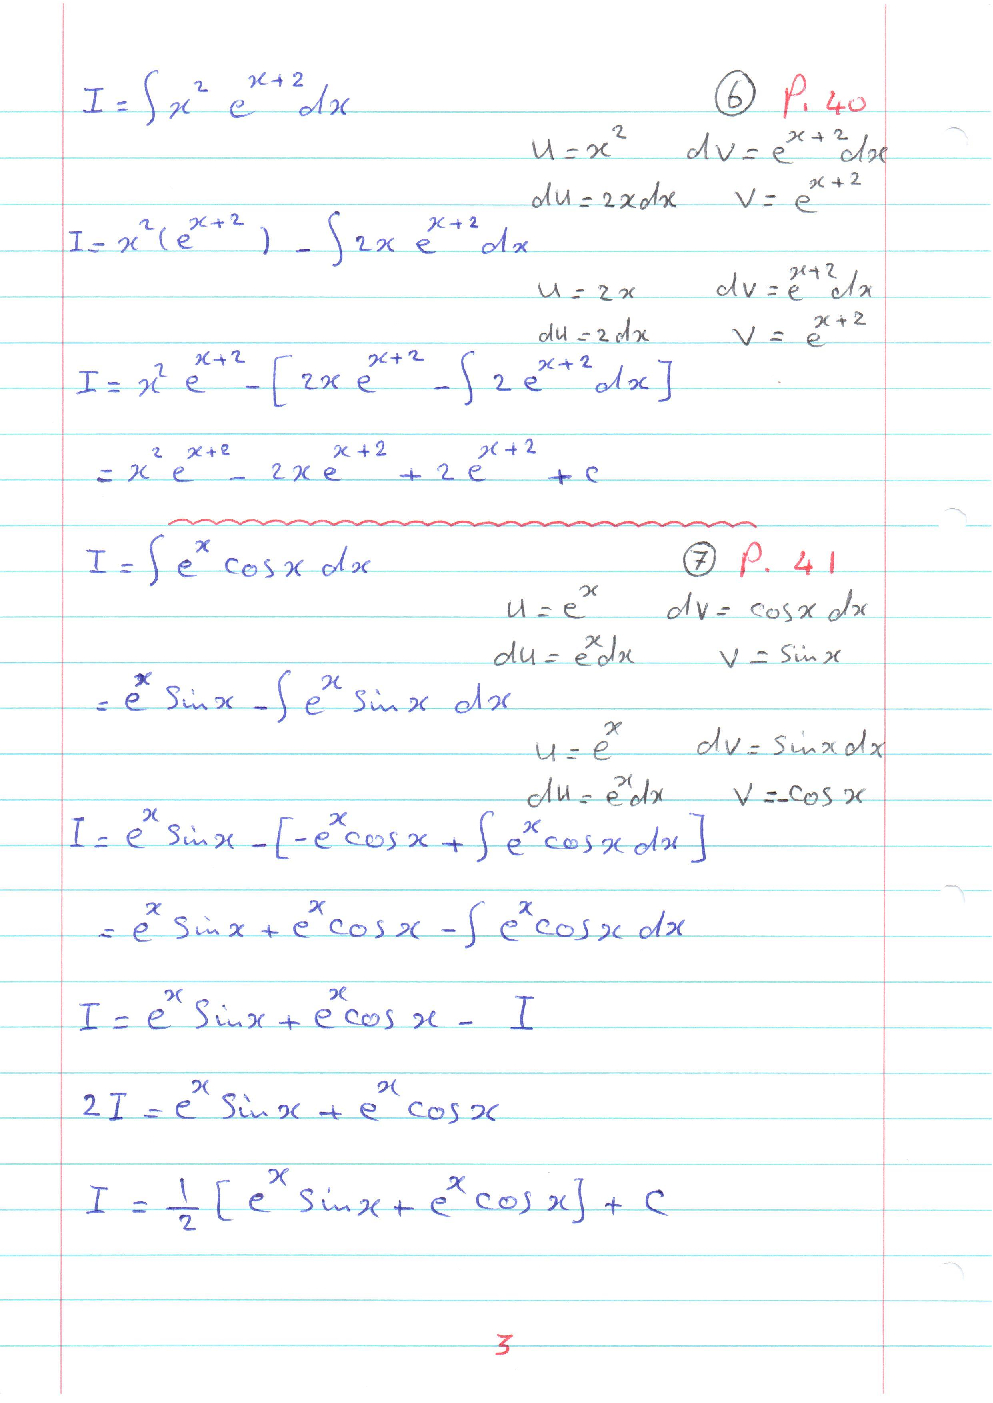 I = ∫ x² e^(x+2) dx ⑥ P. 40
u = x² dv = e^(x+2) dx
du = 2x dx v = e^(x+2)
I = x² (e^(x+2)) - ∫ 2x e^(x+2) dx
u = 2x dv = e^(x+2) dx
du = 2 dx v = e^(x+2)
I = x² e^(x+2) - [2x e^(x+2) - ∫ 2 e^(x+2) dx]
= x² e^(x+2) - 2x e^(x+2) + 2 e^(x+2) + c
I = ∫ e^x cos x dx ⑦ P. 41
u = e^x dv = cos x dx
du = e^x dx v = sin x
= e^x sin x - ∫ e^x sin x dx
u = e^x dv = sin x dx
du = e^x dx v = -cos x
I = e^x sin x - [-e^x cos x + ∫ e^x cos x dx]
= e^x sin x + e^x cos x - ∫ e^x cos x dx
I = e^x sin x + e^x cos x - I
2I = e^x sin x + e^x cos x
I = 1/2 [e^x sin x + e^x cos x] + c
3